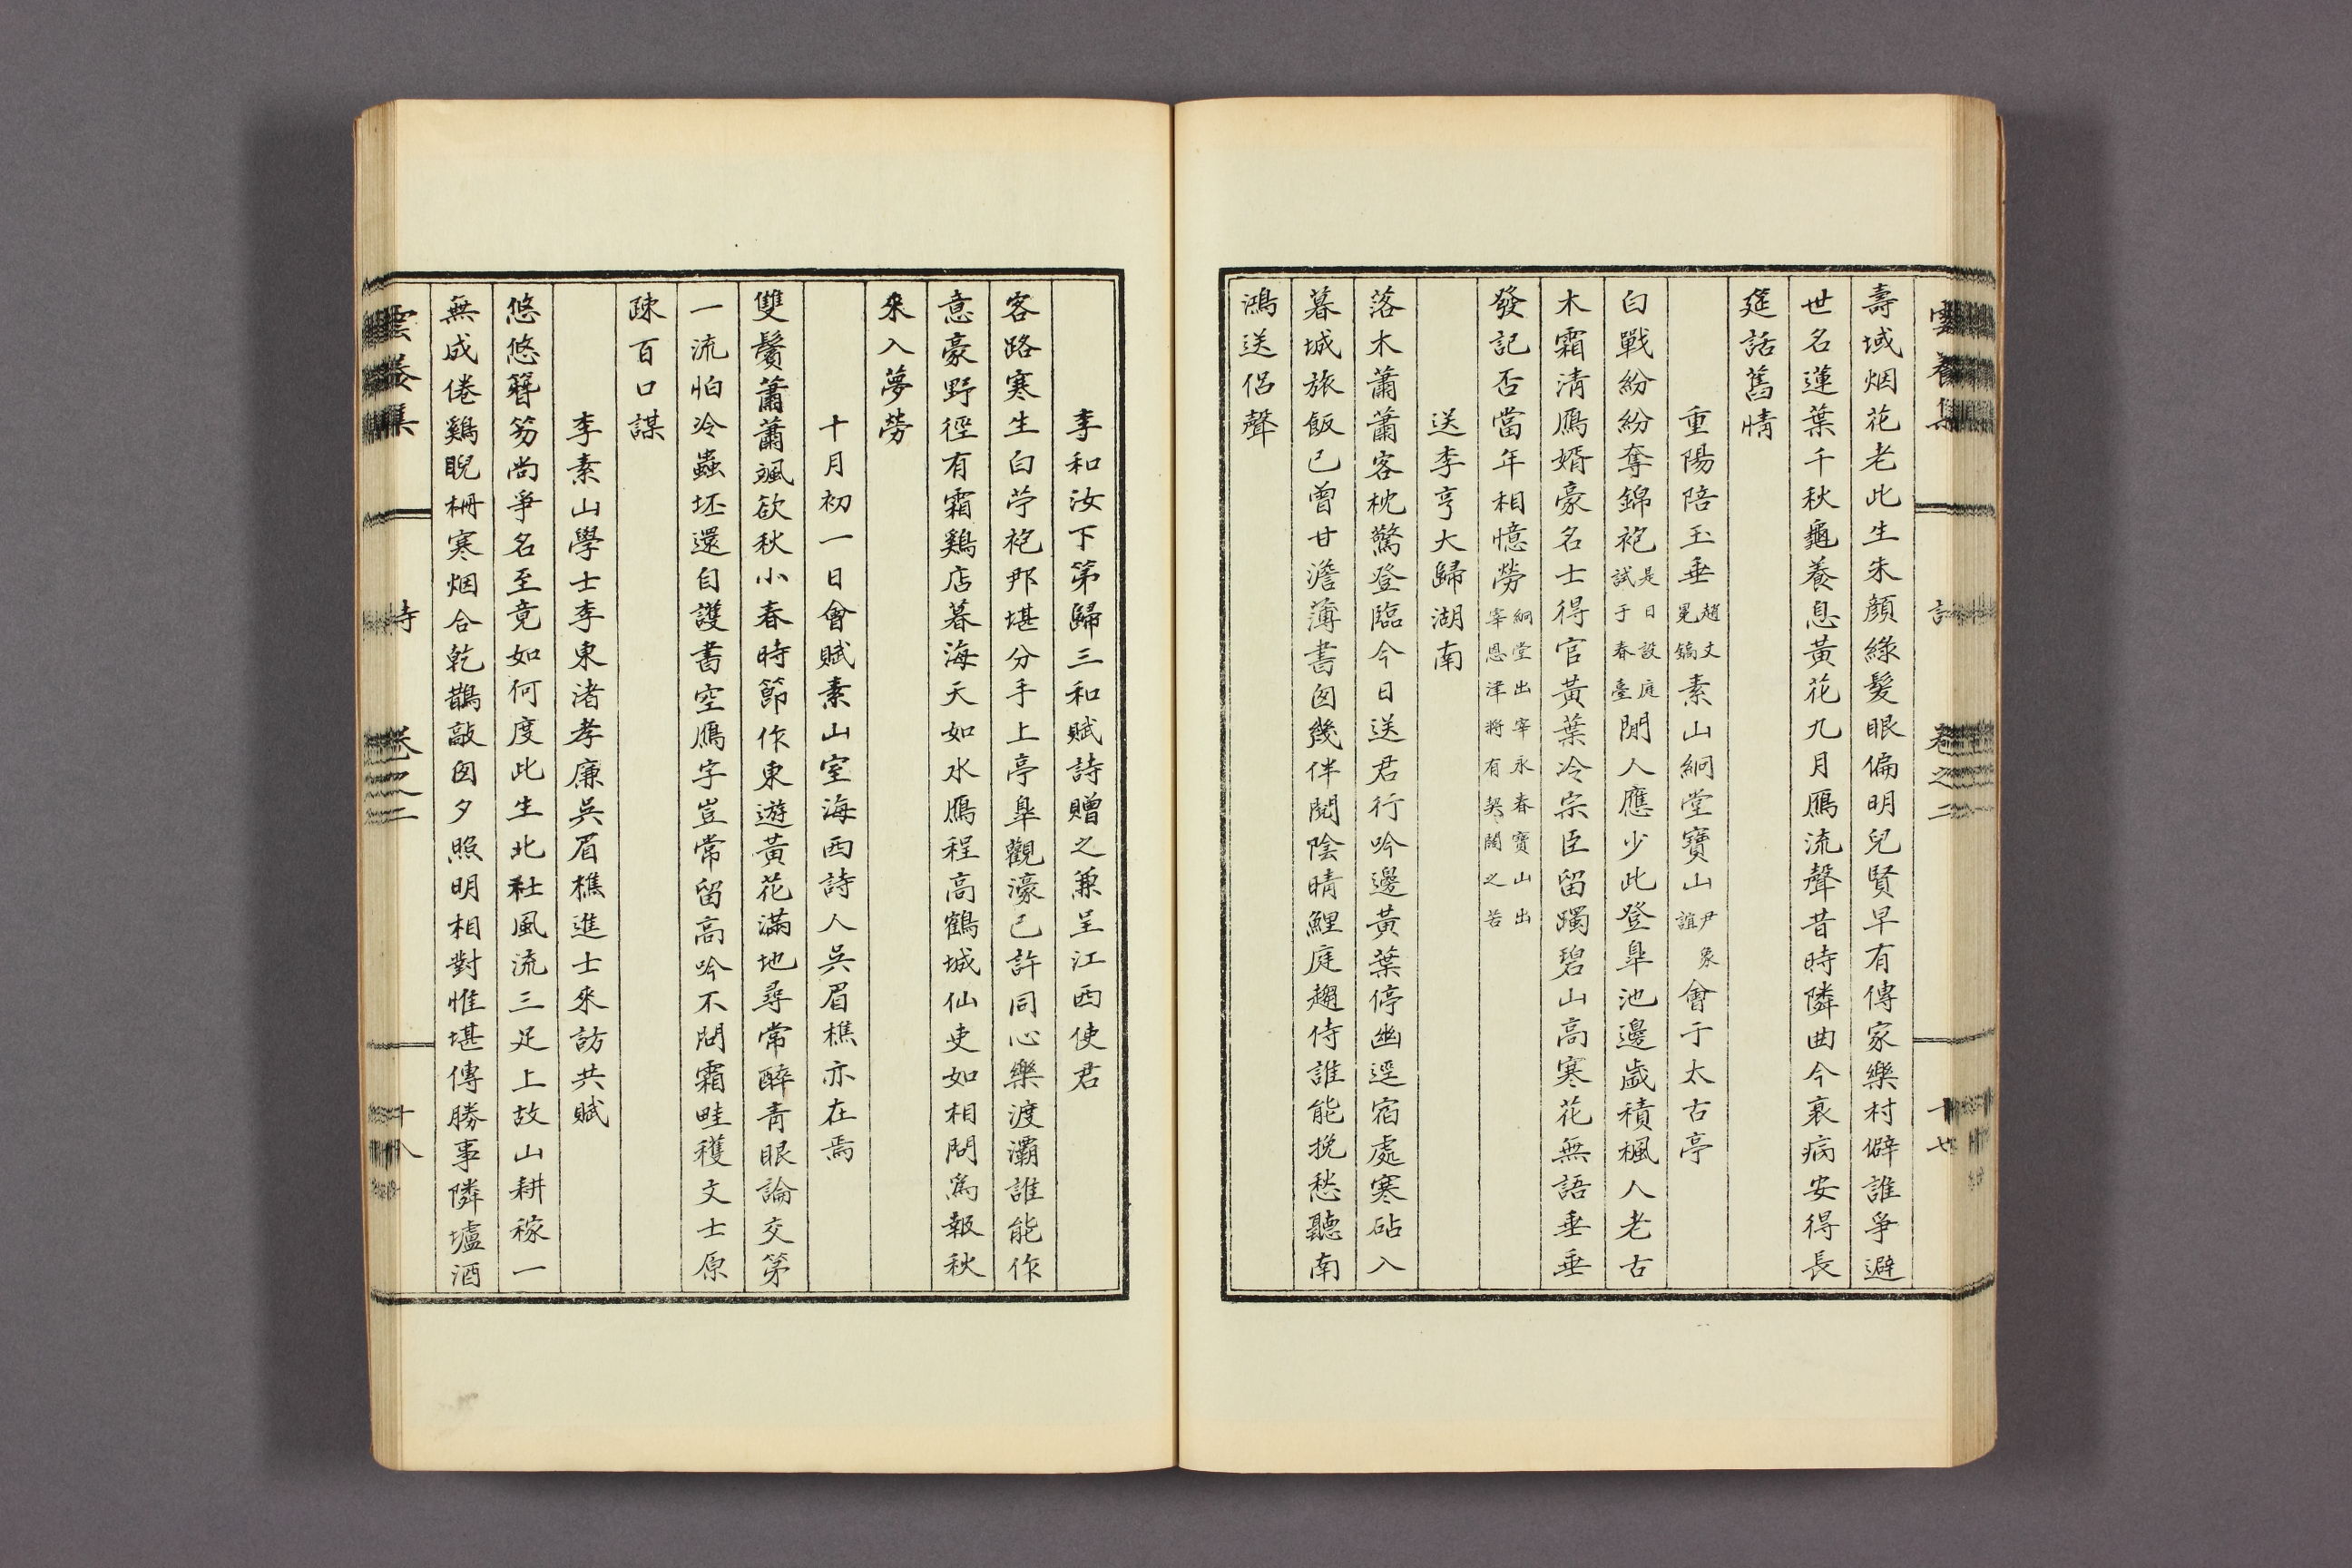 雲養集 詩 卷之二 十七
壽域烟花老此生朱顏綠髮眼偏明兒賢早有傳家樂村僻誰爭避
世名蓮葉千秋龜養息黃花九月鴈流聲昔時隣曲今衰病安得長
筵話舊情
重陽陪玉垂趙丈冕鎬素山絅堂寶山尹象誼會于太古亭
白戰紛紛奪錦袍是日設庭試于春臺閒人應少此登皐池邊歲積楓人老古
木霜清鴈婿豪名士得官黃葉冷宗臣留躅碧山高寒花無語垂垂
發記否當年相憶勞絅堂出宰永春寶山出宰恩津將有契濶之苦
送李亨大歸湖南
落木蕭蕭客枕驚登臨今日送君行吟邊黃葉停幽逕宿處寒砧入
暮城旅飯已曾甘澹薄書囪幾伴閱陰晴鯉庭趨侍誰能挽愁聽南
鴻送侶聲
李和汝下第歸三和賦詩贈之兼呈江西使君
客路寒生白苧袍那堪分手上亭皐觀濠已許同心樂渡灞誰能作
意豪野徑有霜鷄店暮海天如水鴈程高鶴城仙吏如相問爲報秋
來入夢勞
十月初一日會賦素山室海西詩人吳眉樵亦在焉
雙鬢蕭蕭颯欲秋小春時節作東遊黃花滿地尋常醉青眼論交第
一流怕冷蟲坯還自護書空鴈字豈常留高吟不問霜畦穫文士原
疎百口謀
李素山學士李東渚孝廉吳眉樵進士來訪共賦
悠悠簪笏尚爭名至竟如何度此生北社風流三足上故山耕稼一
無成倦鷄睨柵寒烟合乾鵲敲囪夕照明相對惟堪傳勝事隣壚酒
雲養集 詩 卷之二 十八